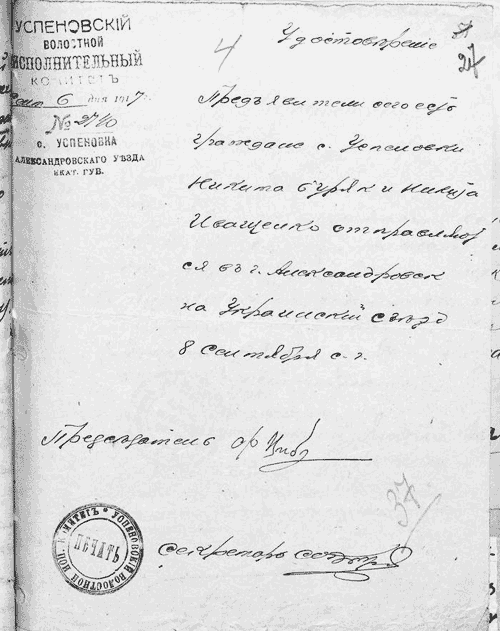 УСПЕНОВСКІЙ
ВОЛОСТНОЙ
ИСПОЛНИТЕЛЬНЫЙ
КОМИТЕТЪ
Сент. 6 дня 1917 г.
№ 2740
с. УСПЕНОВКА
АЛЕКСАНДРОВСКАГО УѢЗДА
ЕКАТ. ГУВ.
4
27
Удостовѣреніе
Предъявители сего есть
граждане с. Успеновки
Никита Буряк и Никита
Иващенко отправляют
ся въ г. Александровск
на Украинскій съѣзд
8 сентября с. г.
Председатель
37
Секретарь
УСПЕНОВСКІЙ ВОЛОСТНОЙ ИСП. КОМИТЕТЪ
ПЕЧАТЬ